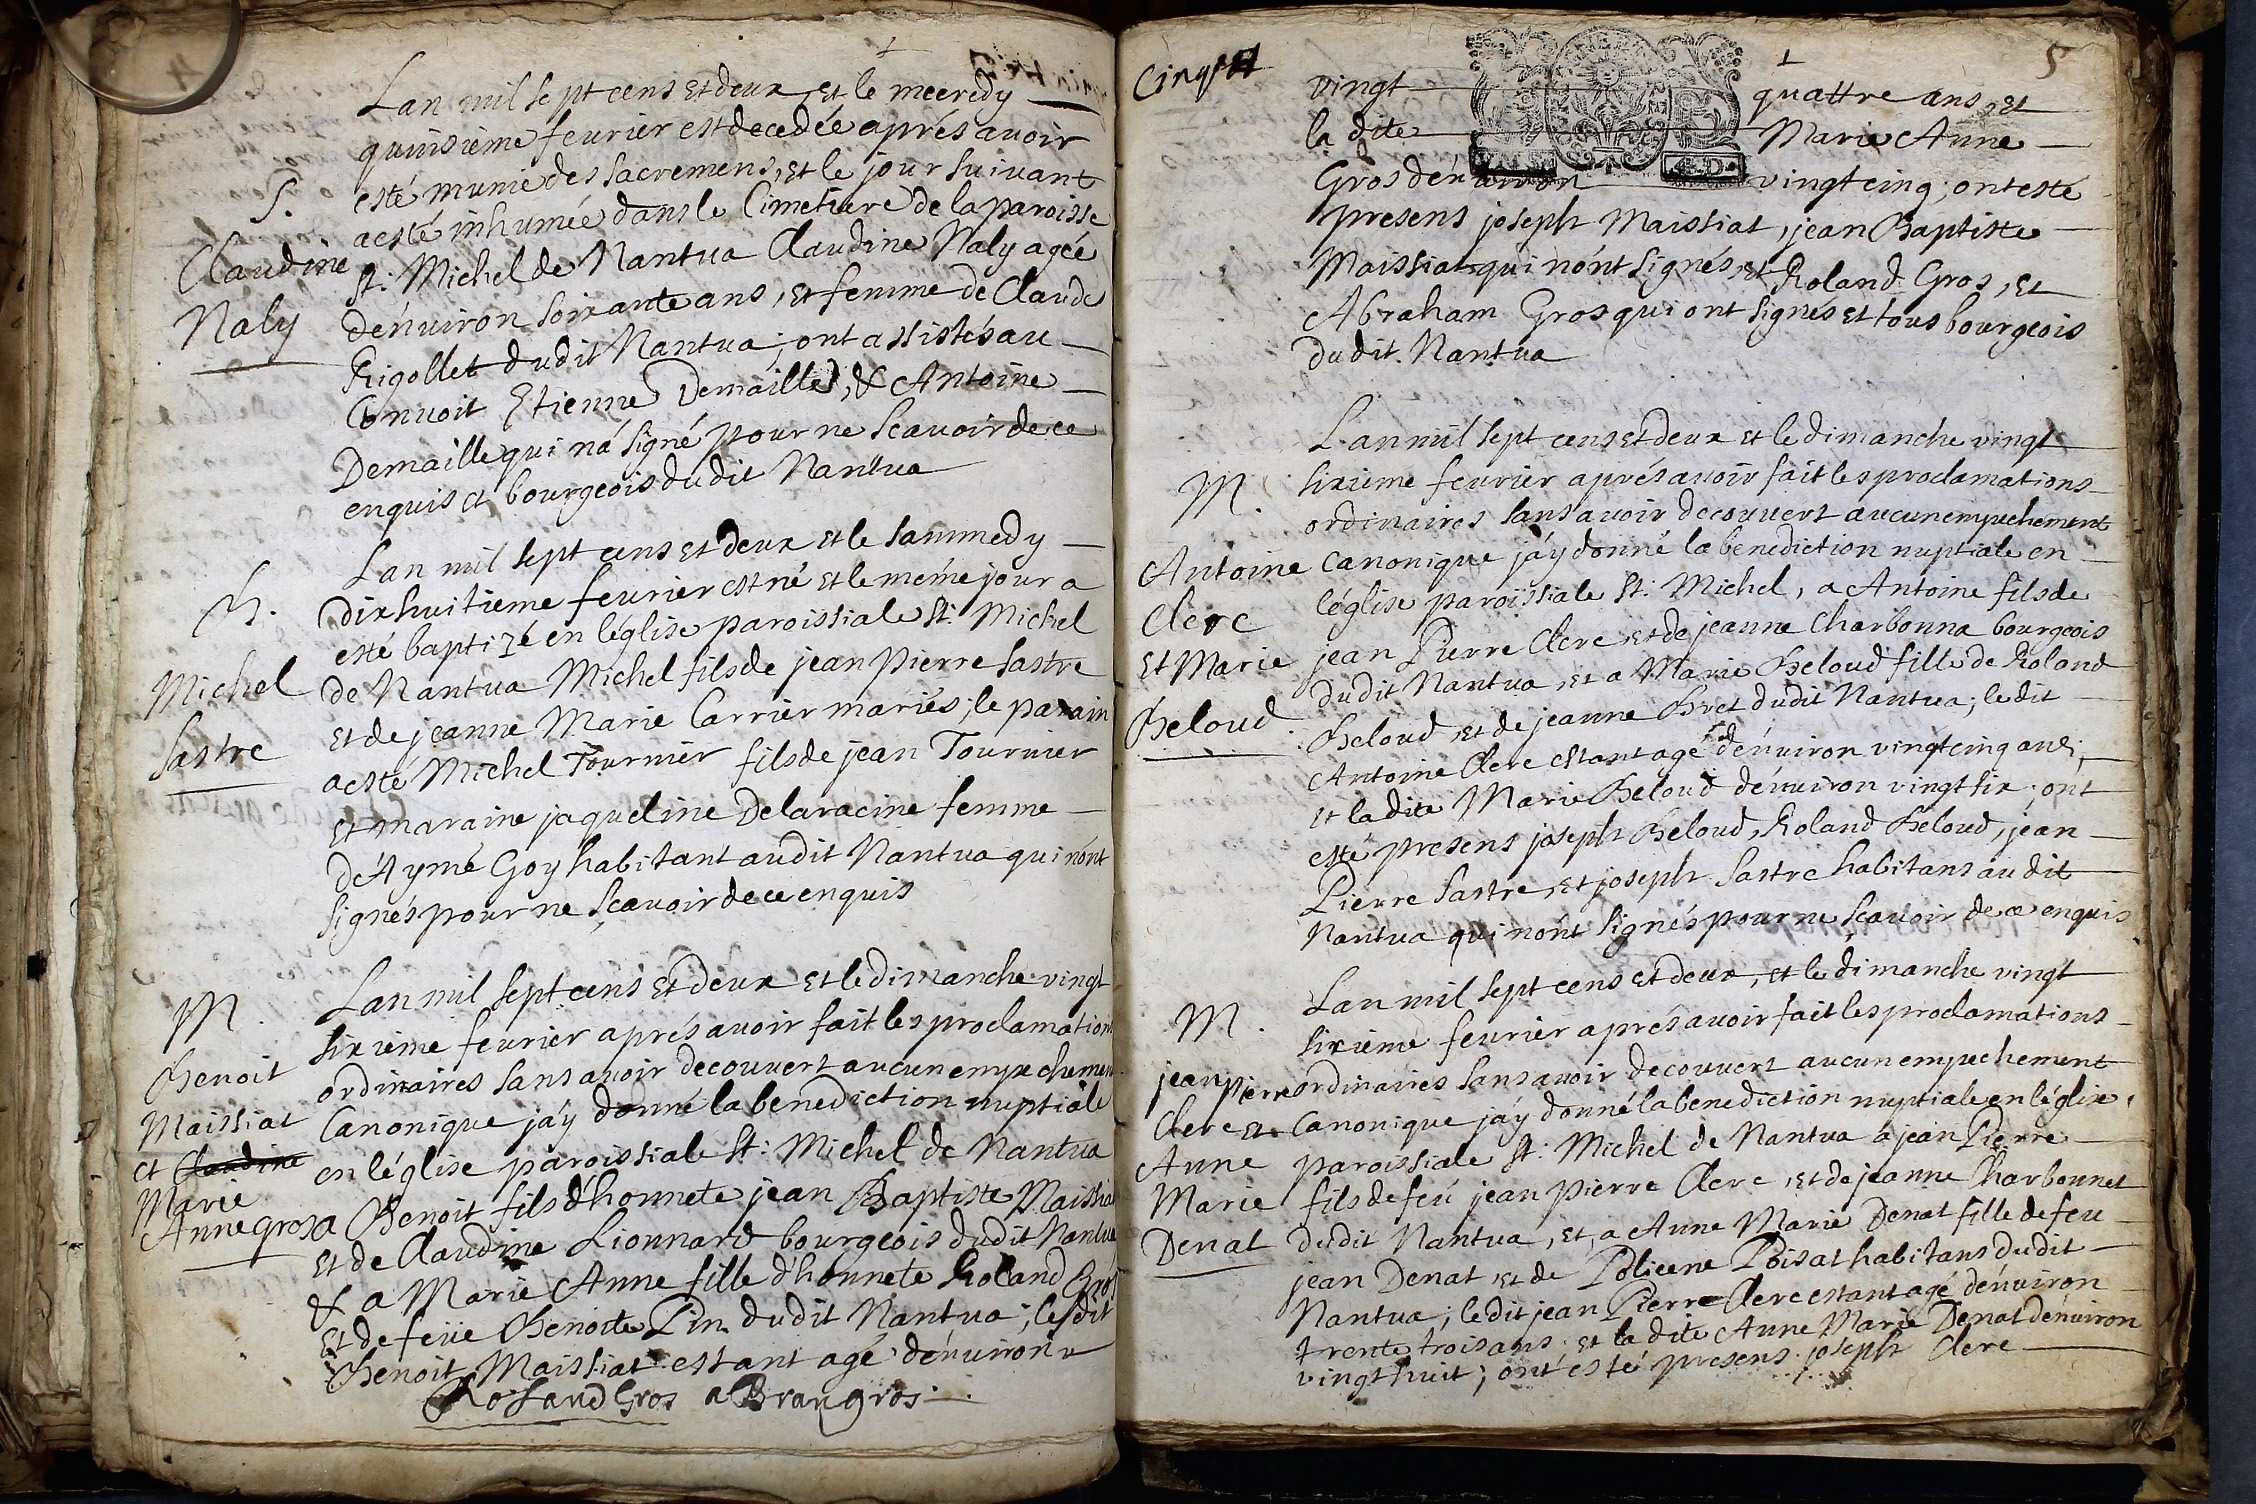 Lan mil sept cens et deux, et le mecredy
quinsieme feurier est decedée aprés auoir
esté munie des sacremens, et le jour suiuant
a esté inhumée dans le Cimetiere de la paroisse
S.
Claudine
Naly
st: Michel de Nantua Claudine Naly agée
d'enuiron soixante ans, et femme de Claude
Rigollet dudit Nantua; ont assistés au
Conuoit Etienne Demaille, & Antoine
Demaille qui n'a signé pour ne scauoir de ce
enquis et bourgeois dudit Nantua
B.
Michel
Sastre
Lan mil sept cens et deux et le sammedy
dix huitieme feurier est né et le méme jour a
esté baptizé en léglise paroissiale st: Michel
de Nantua Michel fils de jean pierre Sastre
et de jeanne Marie Carrier mariés; le parain
a esté Michel Tournier fils de jean Tournier
et maraine jaqueline Delaracine femme
d'Aymé Goy habitant audit Nantua qui n'ont
signés pour ne sçauoir de ce enquis
M.
Benoit
Maissiat
et Claudine
Marie
Anne gros
Lan mil sept cens et deux et le dimanche vingt
sixieme feurier aprés auoir fait les proclamations
ordinaires sans auoir decouuert aucun empechement
Canonique j'ay donné la benediction nuptiale
en léglise paroissiale st: Michel de Nantua
a Benoit fils d'honnete jean Baptiste Maissiat
et de Claudine Lionnard bourgeois dudit Nantua
& a Marie Anne fille d'honnete Roland Gros
et de feüe Benoite Pin dudit Nantua; le dit
Benoit Maissiat estant agé d'enuiron
Roland Gros abran gros
Cinq
5
vingt quattre ans, et
la dite Marie Anne
Gros d'enuiron vingt cinq; ont esté
presens joseph Maissiat, jean Baptiste
Maissiat qui n'ont signés, et Roland Gros, et
Abraham Gros qui ont signés et tous bourgeois
dudit Nantua
M.
Antoine
Clerc
et Marie
Beloud.
L'an mil sept cens et deux et le dimanche vingt
sixieme feurier aprés auoir fait les proclamations
ordinaires sans auoir decouuert aucun empechement
canonique j'ay donné la benediction nuptiale en
léglise paroissiale st: Michel, a Antoine fils de
jean Pierre Clerc et de jeanne Charbonna bourgeois
dudit Nantua et a Marie Beloud fille de Roland
Beloud et de jeanne Bret dudit Nantua; le dit
Antoine Clerc estant agé d'enuiron vingt cinq ans;
et la dite Marie Beloud d'enuiron vingt six; ont
esté presens joseph Beloud, Roland Beloud, jean
Pierre Sastre, et joseph Sastre habitans au dit
Nantua qui n'ont signés pour ne scauoir de ce enquis
M.
jean pierre
Clerc et
Anne
Marie
Denat
Lan mil sept cens et deux, et le dimanche vingt
sixieme feurier aprés auoir fait les proclamations
ordinaires sans auoir decouuert aucun empechement
Canonique j'ay donné la benediction nuptiale en léglise
paroissiale st: Michel de Nantua a jean Pierre
fils de feu jean pierre Clerc, et de jeanne Charbonnet
dudit Nantua, et a Anne Marie Denat fille de feu
jean Denat et de Policene Poisat habitans dudit
Nantua; le dit jean Pierre Clerc estant agé d'enuiron
trente trois ans, et la dite Anne Marie Denat d'enuiron
vingt huit; ont esté presens joseph Clerc